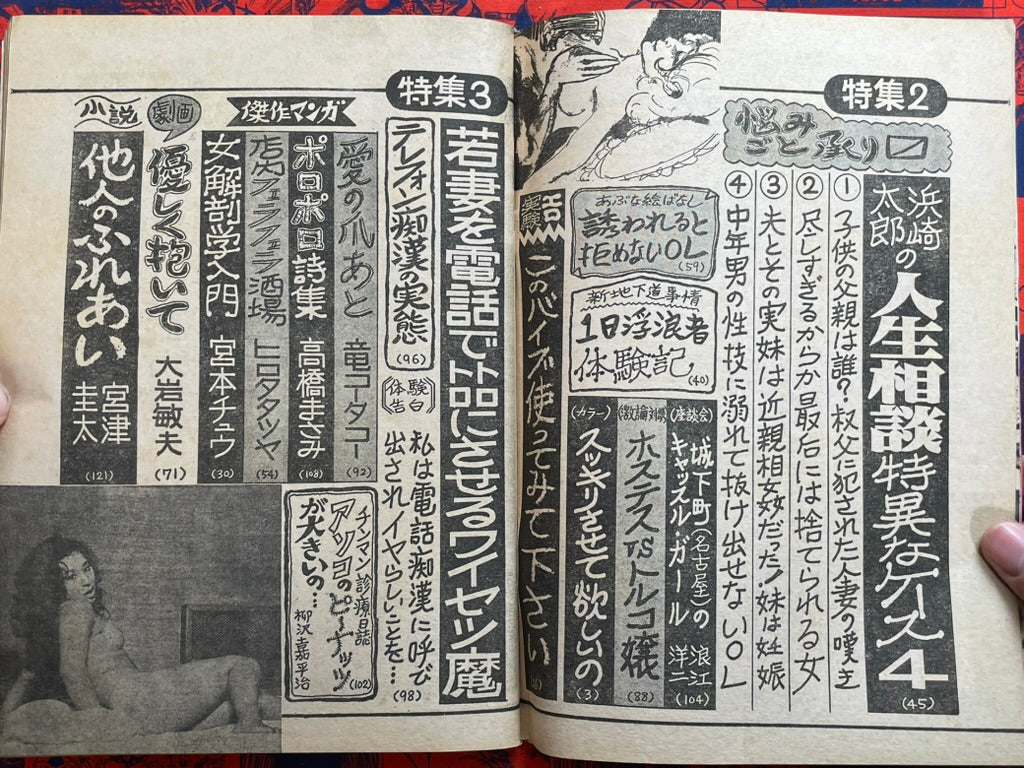 特集2
悩みごと承り〼
浜崎太郎の人生相談 特異なケース4
(45)
①子供の父親は誰?叔父に犯された人妻の嘆き
②尽しすぎるからか最后には捨てられる女
③夫とその実妹は近親相姦だった!妹は妊娠
④中年男の性技に溺れて抜け出せないOL
あぶな絵ばなし
誘われると
拒めないOL
(59)
新地下道事情
1日浮浪者
体験記
(40)
(座談会)
城下町(名古屋)の
キャッスルガール
浪江洋二
(104)
(激論対決)
ホステスVSトルコ嬢
(88)
(カラー)
スッキリさせて欲しいの
(3)
エロ実験
このバイブ使ってみて下さい
特集3
若妻を電話でトロトロにさせるワイセツ魔
テレフォン痴漢の実態
(96)
体験告白
私は電話痴漢に呼び
出されイヤらしいことを…
(98)
チン・マン診療日誌
アツコのピーナッツ
が大きいの…
柳沢嘉平治
(102)
傑作マンガ
愛の爪あと 竜コータロー
(92)
ポロポロ詩集 高橋まさみ
(108)
店名フェラフェラ酒場 ヒロタツヤ
(54)
女解剖学入門 宮本チュウ
(30)
劇画
優しく抱いて 大岩敏夫
(71)
小説
他人のふれあい 宮津圭太
(121)